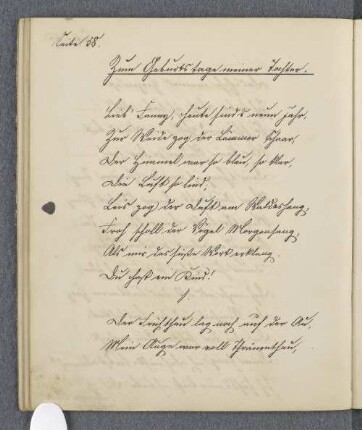 Seite 58.
Zum Geburtstage meiner Tochter.
Lieb' Fanny, heute sind's neun Jahr,
Zur Weide zog der Lämmer Schaar,
Der Himmel war so blau, so klar,
Die Luft so lind,
Leis zog der Duft am Waldeshang,
Froh scholl der Vögel Morgensang,
Als mir das süße Wort erklang:
Du hast ein Kind!
Der Frühthau lag noch auf der Au,
Mein Auge war voll Thränenthau,